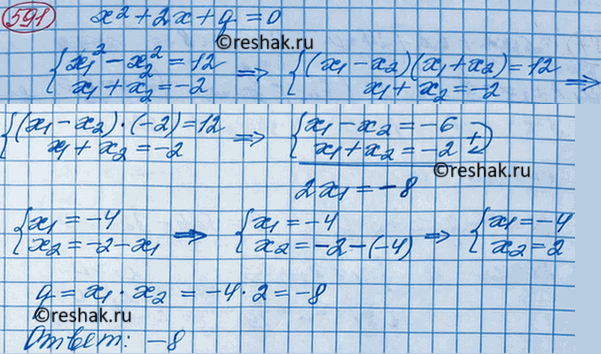 591 x² + 2x + q = 0
©reshak.ru
{x₁² - x₂² = 12 ⇒ {(x₁ - x₂)(x₁ + x₂) = 12 ⇒
x₁ + x₂ = -2 x₁ + x₂ = -2
{(x₁ - x₂)·(-2) = 12 ⇒ {x₁ - x₂ = -6
x₁ + x₂ = -2 x₁ + x₂ = -2 +
©reshak.ru
2x₁ = -8
{x₁ = -4 ⇒ {x₁ = -4 ⇒ {x₁ = -4
x₂ = -2 - x₁ x₂ = -2 - (-4) x₂ = 2
q = x₁ · x₂ = -4 · 2 = -8
©reshak.ru
Ответ: -8